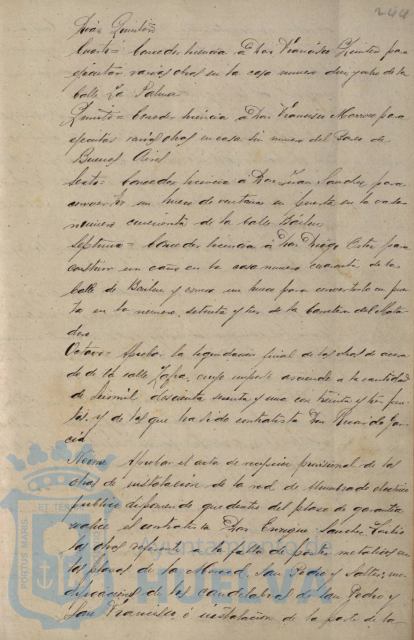 244
Cuarto= Conceder licencia á Don Francisco Quintero para
ejecutar varias obras en la casa numero diez y ocho de la
Calle La Palma
Quinto= Conceder licencia á Don Francisco Marrero para
ejecutar varias obras en casa sin numero del Paseo de
Buenos Aires
Sexto= Conceder licencia á Don Juan Sanchez para
convertir un hueco de ventana en puerta en la casa
numero cincuenta de la Calle
Septimo= Conceder licencia á Don Diego para
construir un caño en la casa numero cuarenta de la
Calle de y un hueco para convertirlo en puer
ta en la numero setenta y tres de la Carretera del Mata
dero
Octavo= Aprobar la liquidacion final de las obras de acera
do de la calle Zafra, cuyo importe asciende a la cantidad
de seismil doscientas y una con treinta y tres
y de las que ha sido contratista Don Gar
cia
Noveno Aprobar el acta de recepcion provisional de las
obras de instalacion de la red de alumbrado electrico
publico disponiendo que dentro del plazo de garantia
realice el contratista Don Enrique Sanchez
las obras referentes a la falta de postes metalicos en
las plazas de la Merced, San Pedro y Saltes, mo
dificaciones de los candelabros de San Pedro y
San Francisco, é instalacion de la parte de la
PORTUS MARIS ET TERRAE
Ayuntamiento de
HUELVA